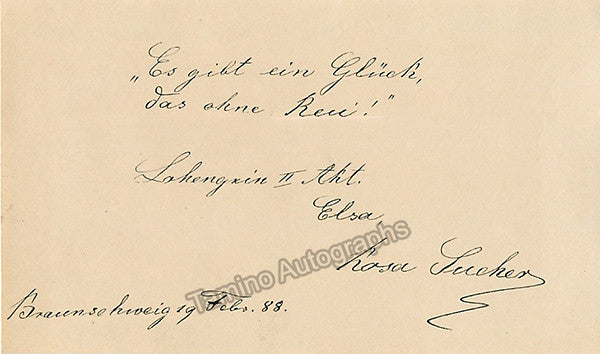 „Es gibt ein Glück,
das ohne Reu'!"
Lohengrin II Akt.
Elsa,
Tamino Autographs
Rosa Sucher
Braunschweig 19 Febr. 88.